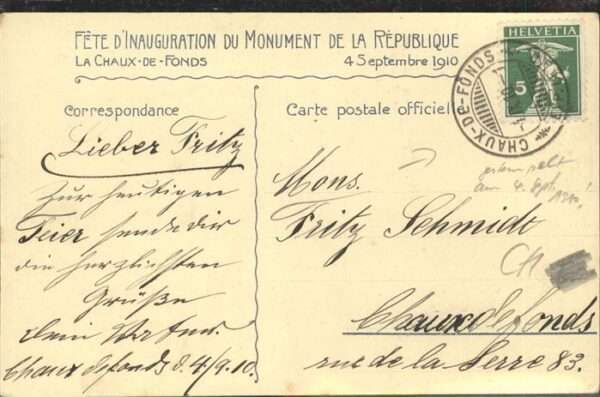 FÊTE D'INAUGURATION DU MONUMENT DE LA RÉPUBLIQUE
LA CHAUX-DE-FONDS 4 Septembre 1910
Correspondance
Carte postale officielle
HELVETIA
5
CHAUX-DE-FONDS
Lieber Fritz
Zur heutigen
Feier sende dir
die herzlichsten
Grüße
dein Vater.
Chaux defonds d. 4/9.10.
Mons.
Fritz Schmidt
Chaux de fonds
rue de la Serre 83.
am 4. Sept. 1910!
CH